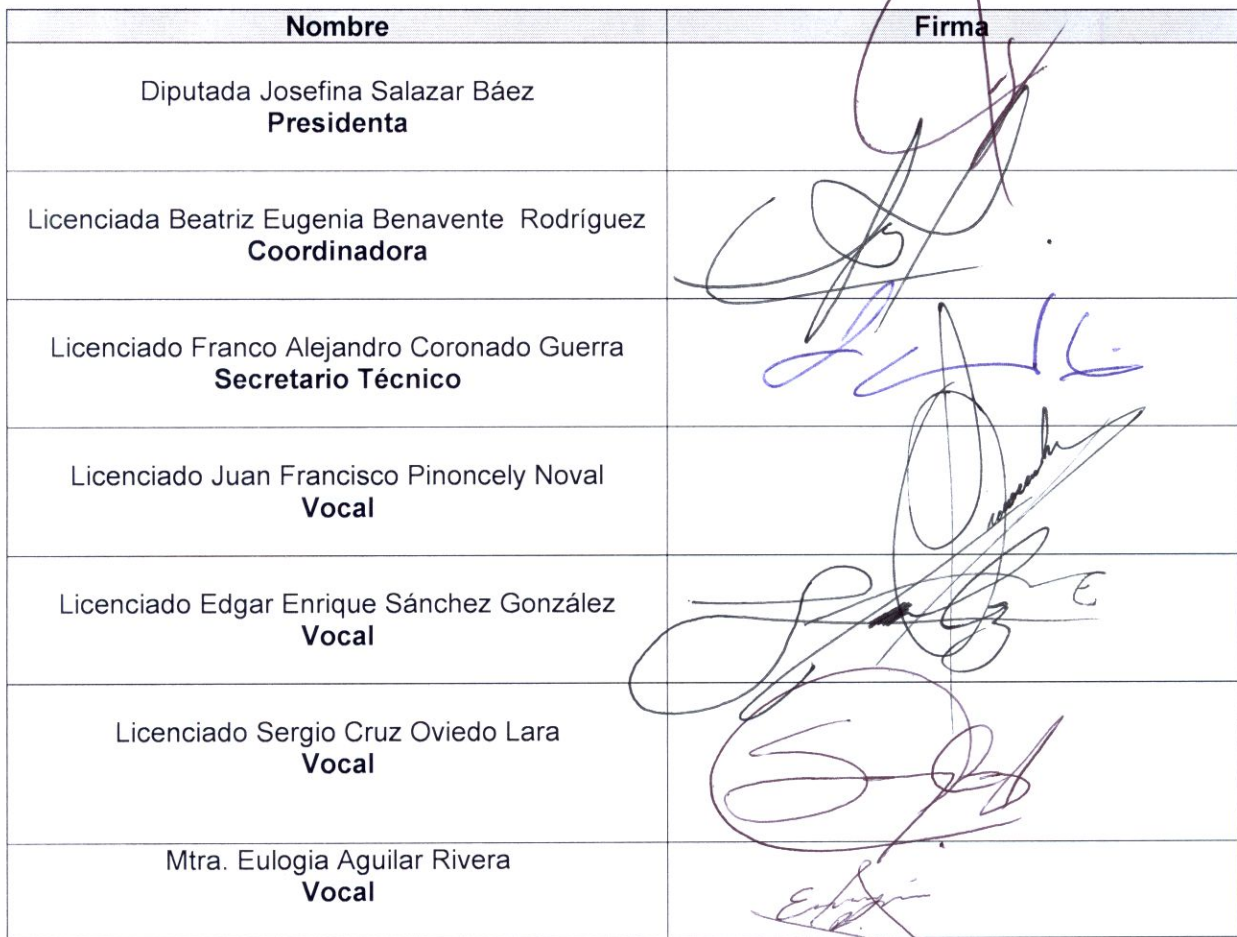 Nombre Firma
Diputada Josefina Salazar Báez
Presidenta
Licenciada Beatriz Eugenia Benavente Rodríguez
Coordinadora
Licenciado Franco Alejandro Coronado Guerra
Secretario Técnico
Licenciado Juan Francisco Pinoncely Noval
Vocal
Licenciado Edgar Enrique Sánchez González
Vocal
Licenciado Sergio Cruz Oviedo Lara
Vocal
Mtra. Eulogia Aguilar Rivera
Vocal